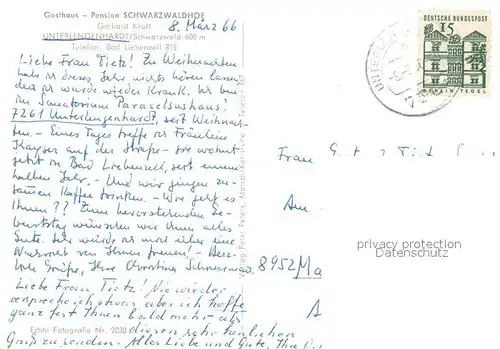 Gasthaus - Pension SCHWARZWALDHOF
Gerhard Kraft
8. März 66
UNTERLENGENHARDT/Schwarzwald 600 m
Telefon: Bad Liebenzell 815
Liebe Frau Tietz! Zu Weihnachten
habe ich dieses Jahr nichts hören lassen
denn ich wurde wieder krank. Ich bin
im Sanatorium Paracelsushaus
7261 Unterlengenhardt, seit Weihnach-
ten - Eines Tages treffe ich Fräulein
Kayser auf der Straße - sie wohnt
jetzt in Bad Liebenzell, seit einem
halben Jahr. - Und wir gingen zu-
samen Kaffee trinken. - Wie geht es
Ihnen?? Zum bevorstehenden Ge-
burtstag wünschen wir Ihnen alles
Gute. Ich würde mich über eine
Antwort von Ihnen freuen! - Herz-
liche Grüße, Ihre Christina
Liebe Frau Tietz! Nie wieder
versprech ich etwas, aber ich hoffe
ganz fest Ihnen bald mehr als
diesen sehr herzlichen
Echte Fotografie Nr. 2030
Gruß zu senden. Alles Liebe und Gute, Ihre
DEUTSCHE BUNDESPOST
15
BERLIN TEGEL
Frau
Am
8952 Ma
A
privacy protection
Datenschutz